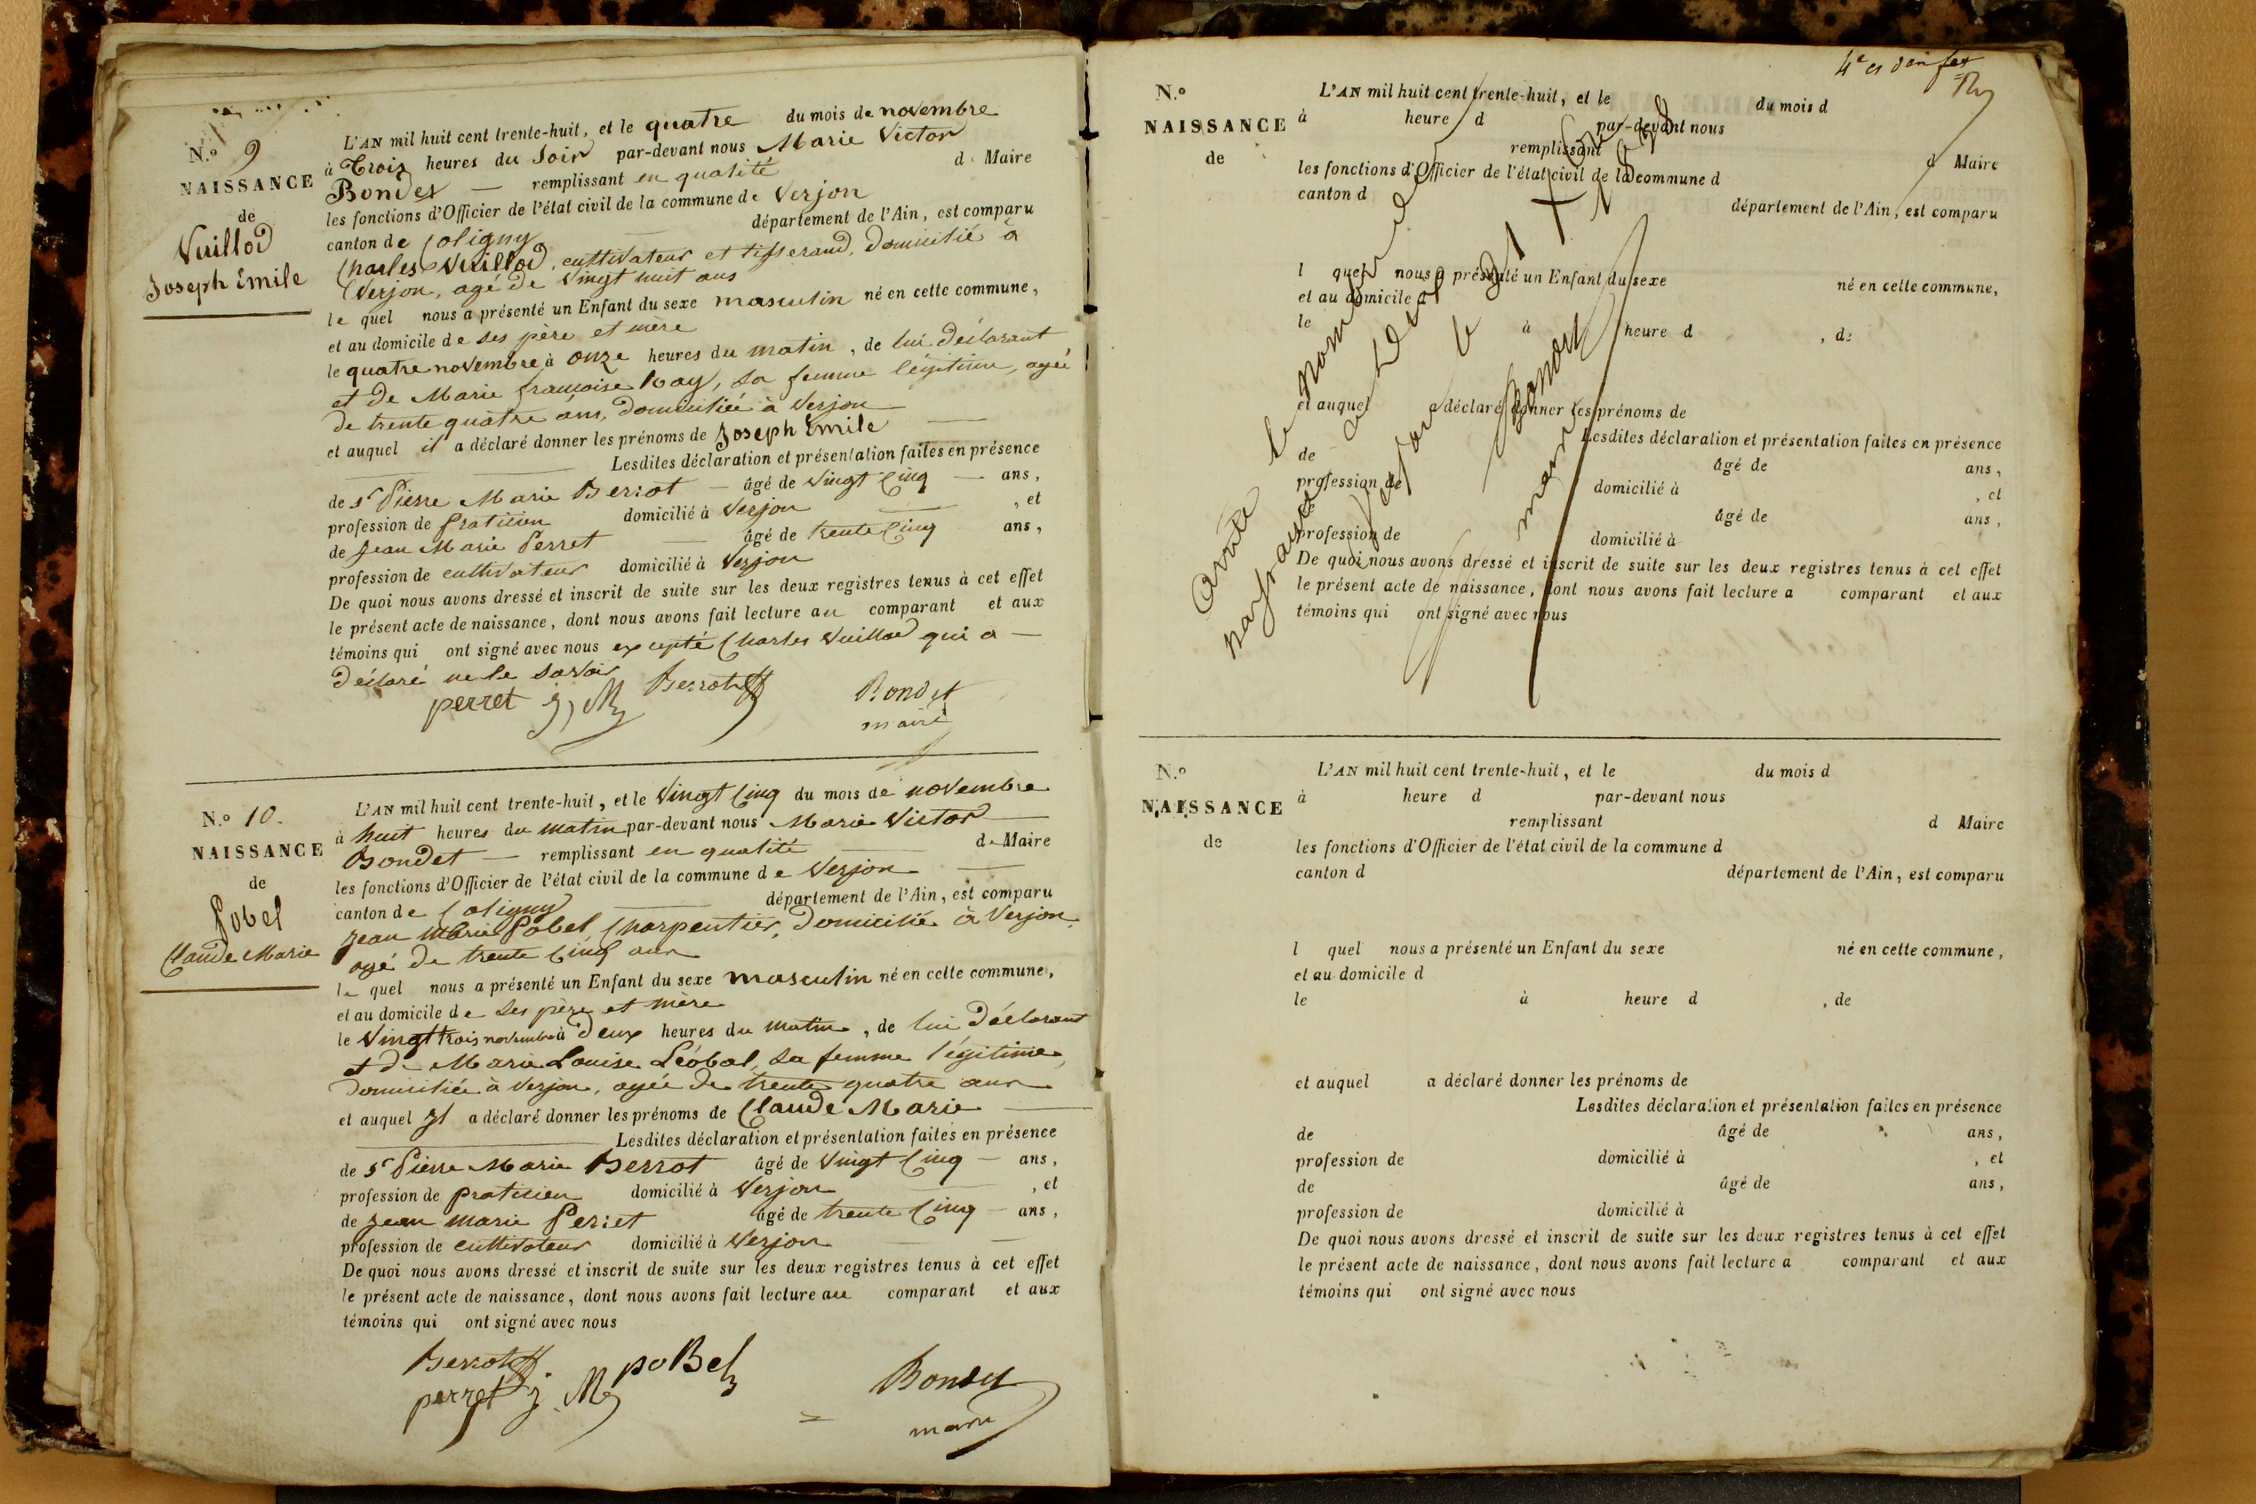 N.° 9
NAISSANCE
de
Vuillod
Joseph Emile
L'AN mil huit cent trente-huit, et le quatre du mois de novembre
à Trois heures du soir par-devant nous Marie Victor
Bondet — remplissant en qualité de Maire
les fonctions d'Officier de l'état civil de la commune de Verjon
canton de Coligny département de l'Ain, est comparu
Charles Vuillod, cultivateur et tisserand, domicilié à
Verjon, agé de vingt huit ans
le quel nous a présenté un Enfant du sexe masculin né en cette commune,
et au domicile de ses père et mère
le quatre novembre à onze heures du matin, de lui déclarant
et de Marie françoise Ray, sa femme légitime, agée
de trente quatre ans, domiciliée à Verjon
et auquel il a déclaré donner les prénoms de Joseph Emile
Lesdites déclaration et présentation faites en présence
de Sr Pierre Marie Berrot — âgé de vingt cinq — ans,
profession de praticien domicilié à Verjon, et
de Jean Marie Perret — âgé de trente cinq ans,
profession de cultivateur domicilié à Verjon
De quoi nous avons dressé et inscrit de suite sur les deux registres tenus à cet effet
le présent acte de naissance, dont nous avons fait lecture au comparant et aux
témoins qui ont signé avec nous excepté Charles Vuillod qui a —
déclaré ne le savoir
perret j, M Berrot Bondet
maire
N.° 10.
NAISSANCE
de
Pobel
Claude Marie
L'AN mil huit cent trente-huit, et le vingt cinq du mois de novembre
à huit heures du matin par-devant nous Marie Victor
Bondet — remplissant en qualité de Maire
les fonctions d'Officier de l'état civil de la commune de Verjon
canton de Coligny département de l'Ain, est comparu
Jean Marie Pobel, charpentier, domicilié à Verjon,
agé de trente cinq ans
le quel nous a présenté un Enfant du sexe masculin né en cette commune,
et au domicile de ses père et mère
le vingt trois novembre à deux heures du matin, de lui déclarant
et de Marie Louise Léobal, sa femme légitime,
domiciliée à Verjon, agée de trente quatre ans
et auquel il a déclaré donner les prénoms de Claude Marie
Lesdites déclaration et présentation faites en présence
de Sr Pierre Marie Berrot âgé de vingt cinq — ans,
profession de praticien domicilié à Verjon, et
de Jean Marie Perret âgé de trente cinq — ans,
profession de cultivateur domicilié à Verjon
De quoi nous avons dressé et inscrit de suite sur les deux registres tenus à cet effet
le présent acte de naissance, dont nous avons fait lecture au comparant et aux
témoins qui ont signé avec nous
Berrot poBel
perret j. M Bondet
maire
N.°
NAISSANCE
de
L'AN mil huit cent trente-huit, et le du mois d
à heure d par-devant nous
remplissant d Maire
les fonctions d'Officier de l'état civil de la commune d
canton d département de l'Ain, est comparu
l quel nous a présenté un Enfant du sexe né en cette commune,
et au domicile d
le à heure d, de
et auquel a déclaré donner les prénoms de
Lesdites déclaration et présentation faites en présence
de âgé de ans,
profession de domicilié à, et
âgé de ans,
profession de domicilié à
De quoi nous avons dressé et inscrit de suite sur les deux registres tenus à cet effet
le présent acte de naissance, dont nous avons fait lecture a comparant et aux
témoins qui ont signé avec nous
arrêté le nombre de
Bondet
maire
N.°
NAISSANCE
de
L'AN mil huit cent trente-huit, et le du mois d
à heure d par-devant nous
remplissant d Maire
les fonctions d'Officier de l'état civil de la commune d
canton d département de l'Ain, est comparu
l quel nous a présenté un Enfant du sexe né en cette commune,
et au domicile d
le à heure d, de
et auquel a déclaré donner les prénoms de
Lesdites déclaration et présentation faites en présence
de âgé de ans,
profession de domicilié à, et
de âgé de ans,
profession de domicilié à
De quoi nous avons dressé et inscrit de suite sur les deux registres tenus à cet effet
le présent acte de naissance, dont nous avons fait lecture a comparant et aux
témoins qui ont signé avec nous